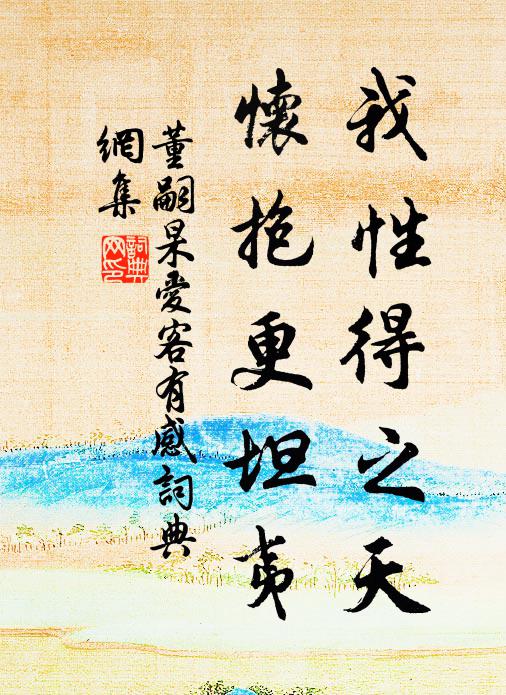 我性得之天
懷抱更坦夷
董嗣杲愛客有感詞典
網集
詞典
网印